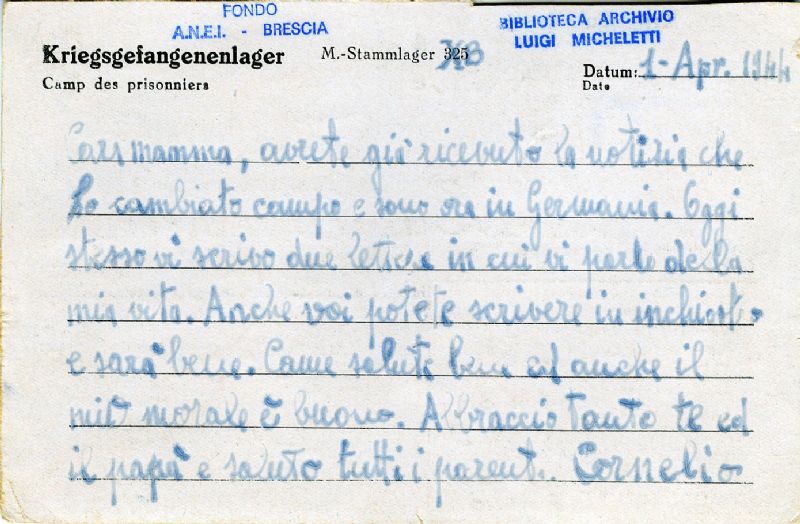 FONDO
A.N.E.I. - BRESCIA
BIBLIOTECA ARCHIVIO
LUIGI MICHELETTI
Kriegsgefangenenlager M.-Stammlager 325 XB
Camp des prisonniers
Datum: 1-Apr. 1944
Date
Cara mamma, avrete già ricevuto la notizia che
ho cambiato campo e sono ora in Germania. Oggi
stesso vi scrivo due lettere in cui vi parlo della
mia vita. Anche voi potete scrivere in inchiostro
e sarà bene. Come salute bene ed anche il
mio morale è buono. Abbraccio tanto te ed
il papà e saluto tutti i parenti. Cornelio